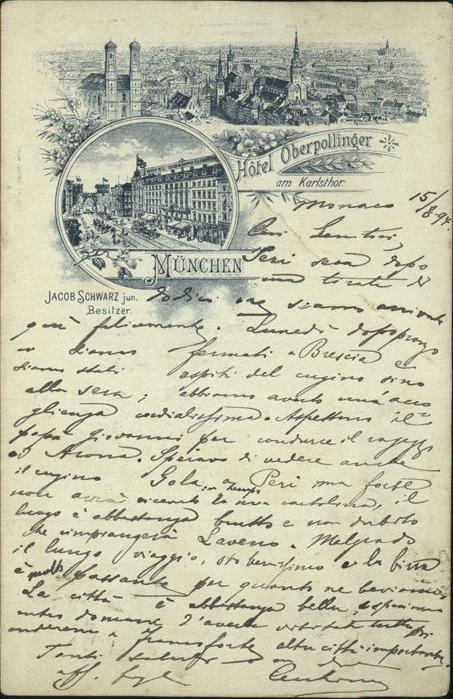 Hôtel Oberpollinger
am Karlsthor
MÜNCHEN
JACOB SCHWARZ jun.
Besitzer.
Monaco 15/8 94.
Cari Genitori,
Ieri sera dopo
una tirata di
dodici ore siamo arrivati
quà felicemente. Lunedì dopopranzo
ci siamo fermati a Brescia e
siamo stati ospiti del cugino sino
alla sera; abbiamo avuto un'acco
glienza cordialissima. Aspettano il
papà Giovanni per condurre il
ad Arona. Speravo di vedere anche
il cugino Gola a Peri ma forse
non avrà ricevuto in tempo la mia cartolina, il
luogo è abbastanza brutto e non dubito
che rimpiangerà Laveno. Malgrado
il lungo viaggio, sto benissimo e la birra
è passante per quanto ne beviamo.
La città è abbastanza bella, e speriamo
entro domani d'averla visitata tutta per
andarcene a altra città importante.
Tanti saluti
aff.